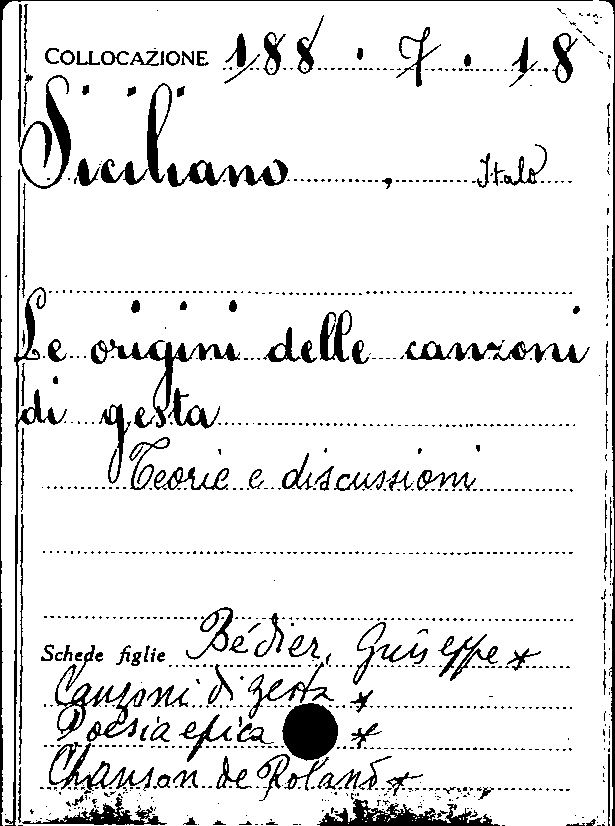 COLLOCAZIONE 188 . 7 . 18
Siciliano, Italo
Le origini delle canzoni
di gesta
Teorie e discussioni
Schede figlie Bédier, Giuseppe *
Canzoni di gesta *
Poesia epica *
Chanson de Roland *